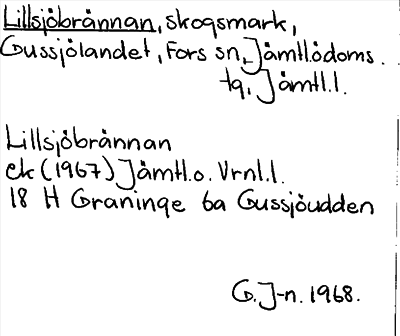 Lillsjöbrännan, skogsmark,
Gussjölandet, Fors sn, Jämtl.ödoms.
tg, Jämtl.l.
Lillsjöbrännan
ek (1967) Jämtl.o. Vrnl.l.
18 H Graninge 6a Gussjöudden
G. J-n. 1968.